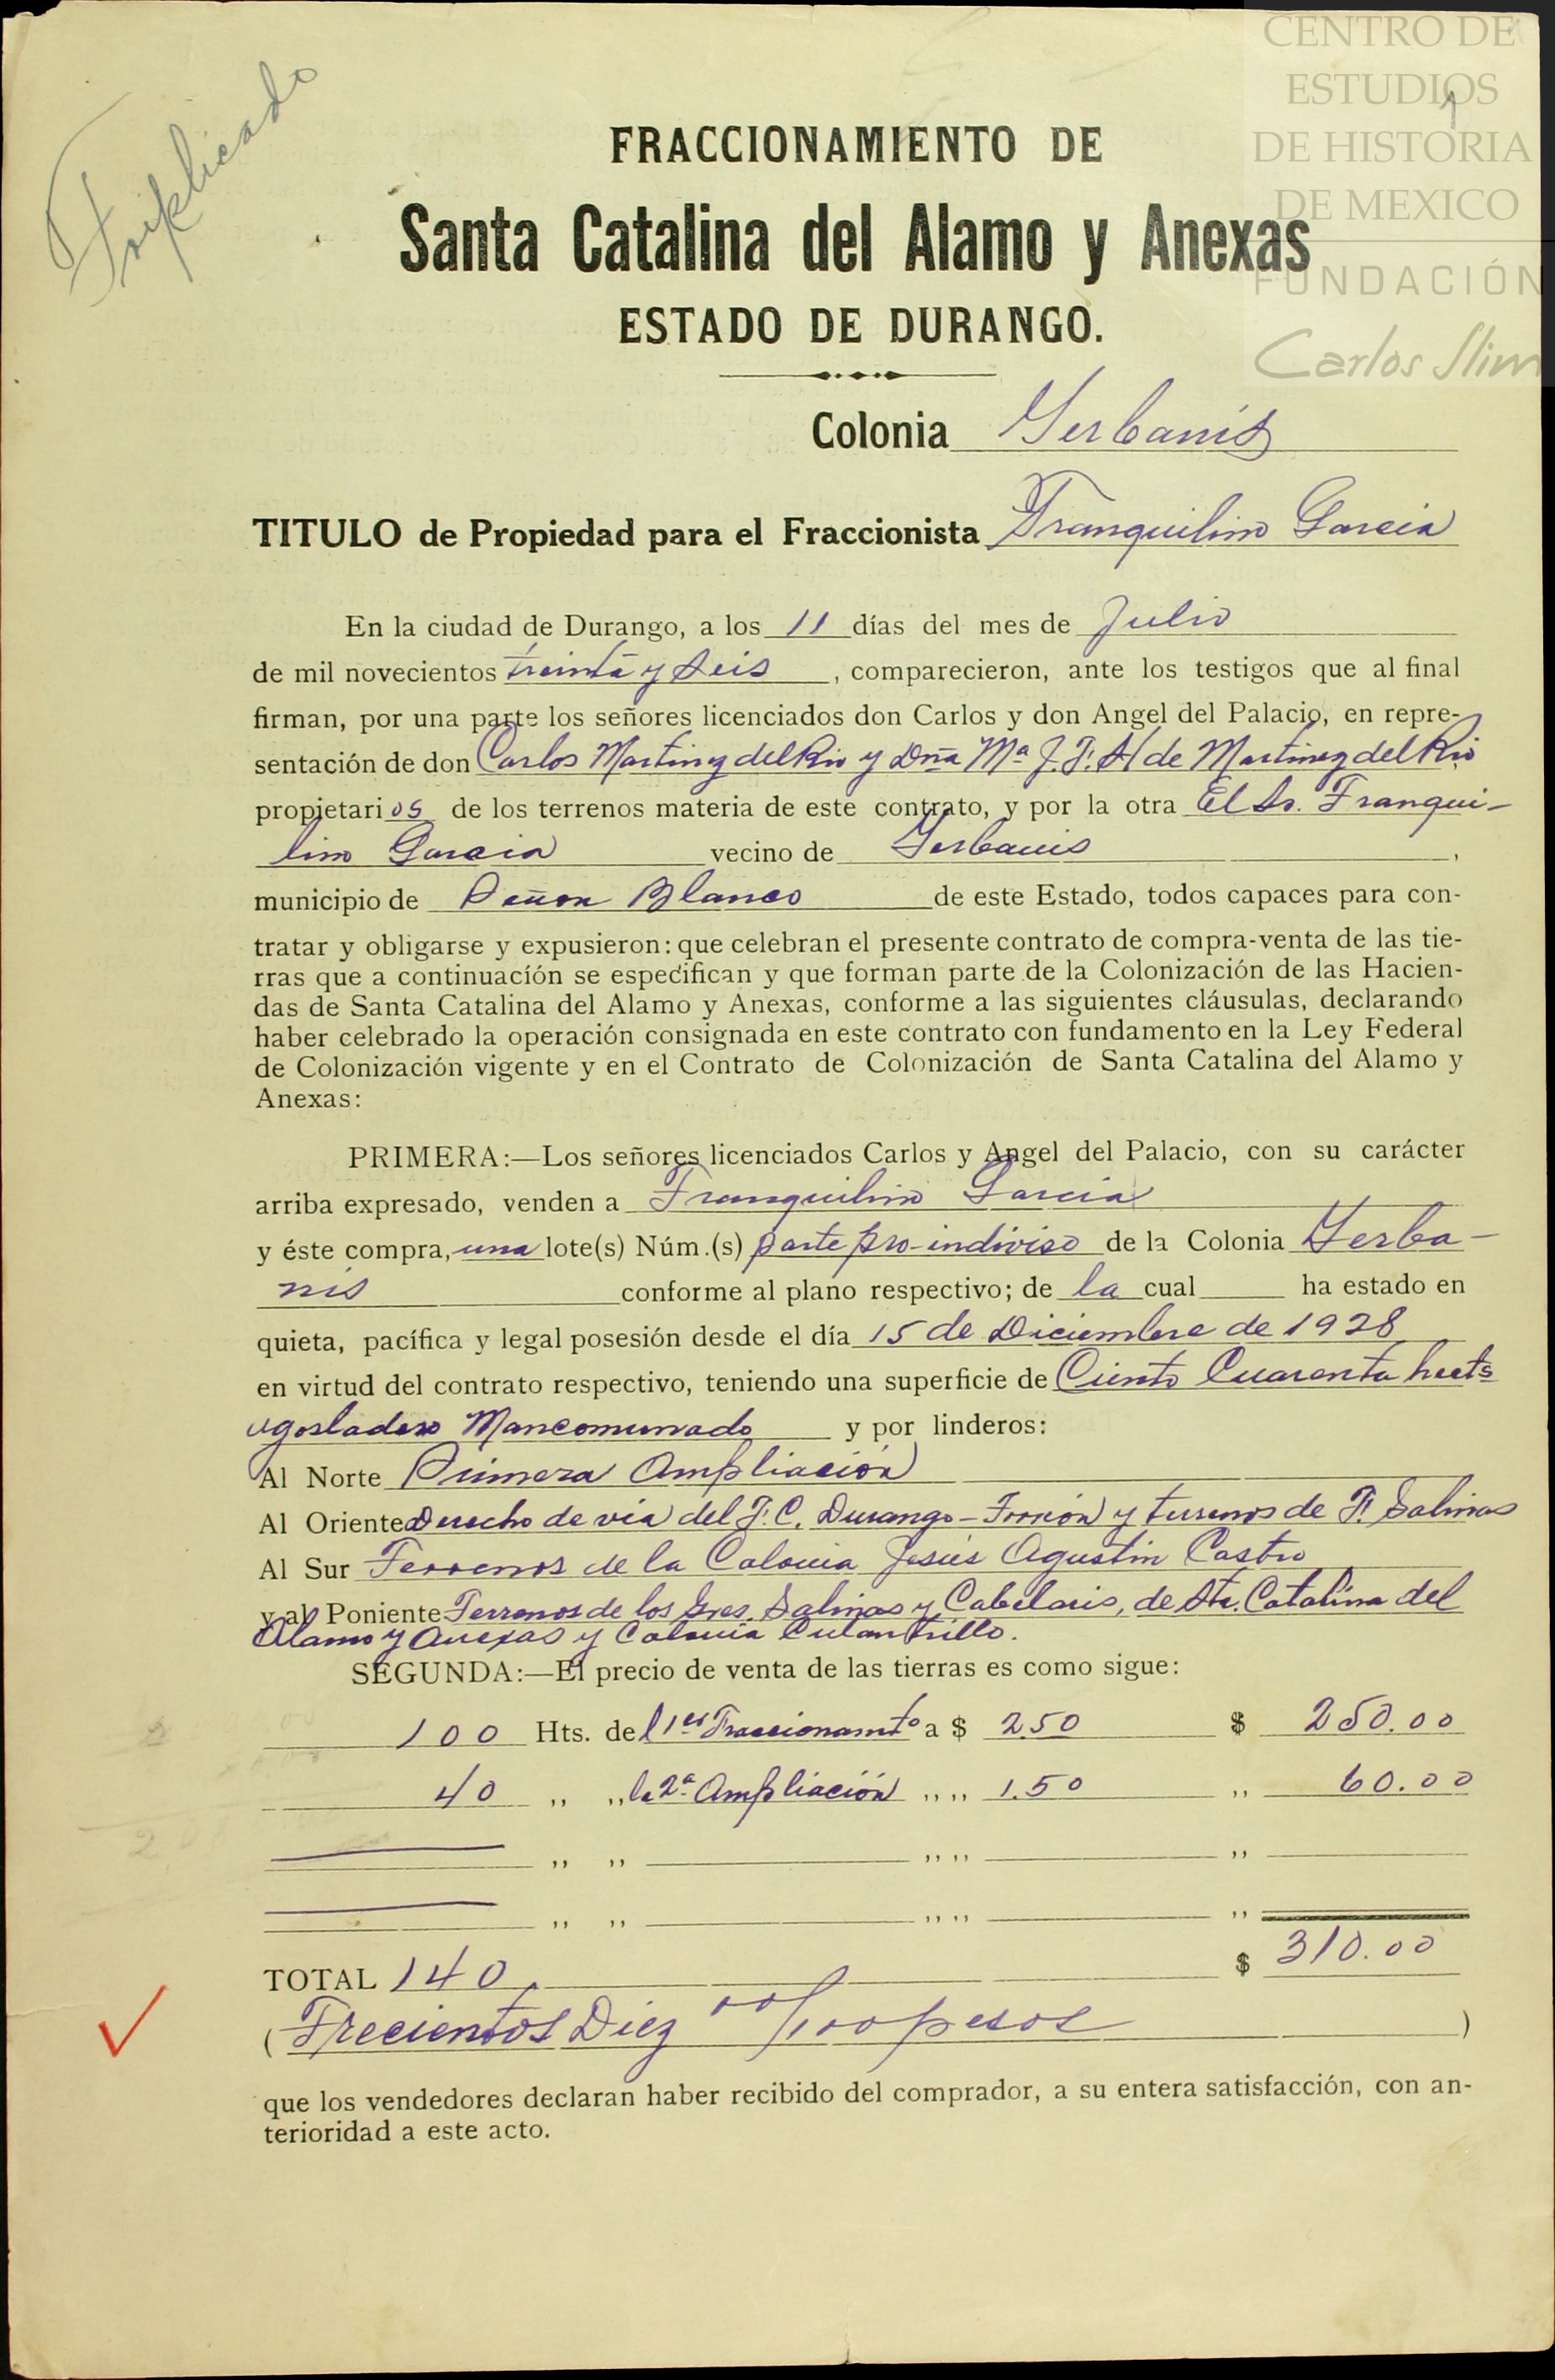 CENTRO DE
ESTUDIOS
DE HISTORIA
DE MEXICO
FUNDACIÓN
Carlos Slim
Triplicado
FRACCIONAMIENTO DE
Santa Catalina del Alamo y Anexas
ESTADO DE DURANGO.
Colonia Yerbanís
TITULO de Propiedad para el Fraccionista Tranquilino Garcia
En la ciudad de Durango, a los 11 días del mes de Julio
de mil novecientos treinta y seis, comparecieron, ante los testigos que al final
firman, por una parte los señores licenciados don Carlos y don Angel del Palacio, en repre-
sentación de don Carlos Martinez del Rio y Dña Mª J. F. H de Martinez del Rio
propietarios de los terrenos materia de este contrato, y por la otra El Sr. Tranqui-
lino Garcia vecino de Yerbanis,
municipio de Peñon Blanco de este Estado, todos capaces para con-
tratar y obligarse y expusieron: que celebran el presente contrato de compra-venta de las tie-
rras que a continuacíón se especifican y que forman parte de la Colonización de las Hacien-
das de Santa Catalina del Alamo y Anexas, conforme a las siguientes cláusulas, declarando
haber celebrado la operación consignada en este contrato con fundamento en la Ley Federal
de Colonización vigente y en el Contrato de Colonización de Santa Catalina del Alamo y
Anexas:
PRIMERA:—Los señores licenciados Carlos y Angel del Palacio, con su carácter
arriba expresado, venden a Tranquilino Garcia
y éste compra, una lote(s) Núm.(s) parte pro-indiviso de la Colonia Yerba-
nis conforme al plano respectivo; de la cual ha estado en
quieta, pacífica y legal posesión desde el día 15 de Diciembre de 1928
en virtud del contrato respectivo, teniendo una superficie de Ciento Cuarenta hects
agostadero Mancomunado y por linderos:
Al Norte Primera Ampliación
Al Oriente Derecho de via del F.C. Durango-Torreón y terrenos de F. Salinas
Al Sur Terrenos de la Colonia Jesús Agustín Castro
y al Poniente Terrenos de los Sres. Salinas y de Sta. Catalina del
Alamo y Anexas y Colonia Culantrillo.
SEGUNDA:—El precio de venta de las tierras es como sigue:
100 Hts. del 1er Fraccionamto a $ 2.50 $ 250.00
40 ,, ,, la 2ª Ampliación ,, ,, 1.50 ,, 60.00
,, ,, ,, ,, ,,
,, ,, ,, ,, ,,
TOTAL 140 $ 310.00
(Trecientos Diez 00/100 pesos)
que los vendedores declaran haber recibido del comprador, a su entera satisfacción, con an-
terioridad a este acto.